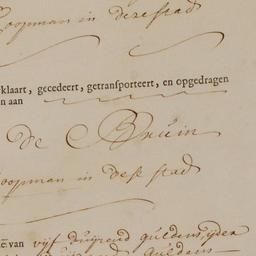 Coopman in dese stad
rklaart, gecedeert, getransporteert, en opgedragen
n aan
de Bruin
Coopman in dese stad
van vijf duijzend guldens, ijder
guldens